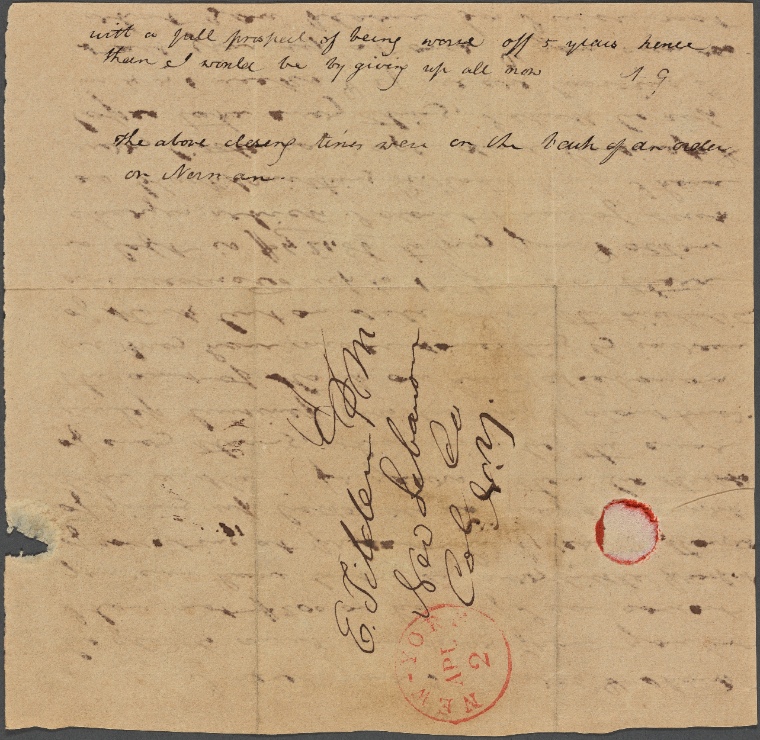 with a full prospect of being worse off 5 years hence
than I would be by giving up all now
The above closing lines were on the back of an order
on Norn an
E. Tilden P M
New Lebanon
Col. Co
N.Y.
NEW-YORK
APL
2